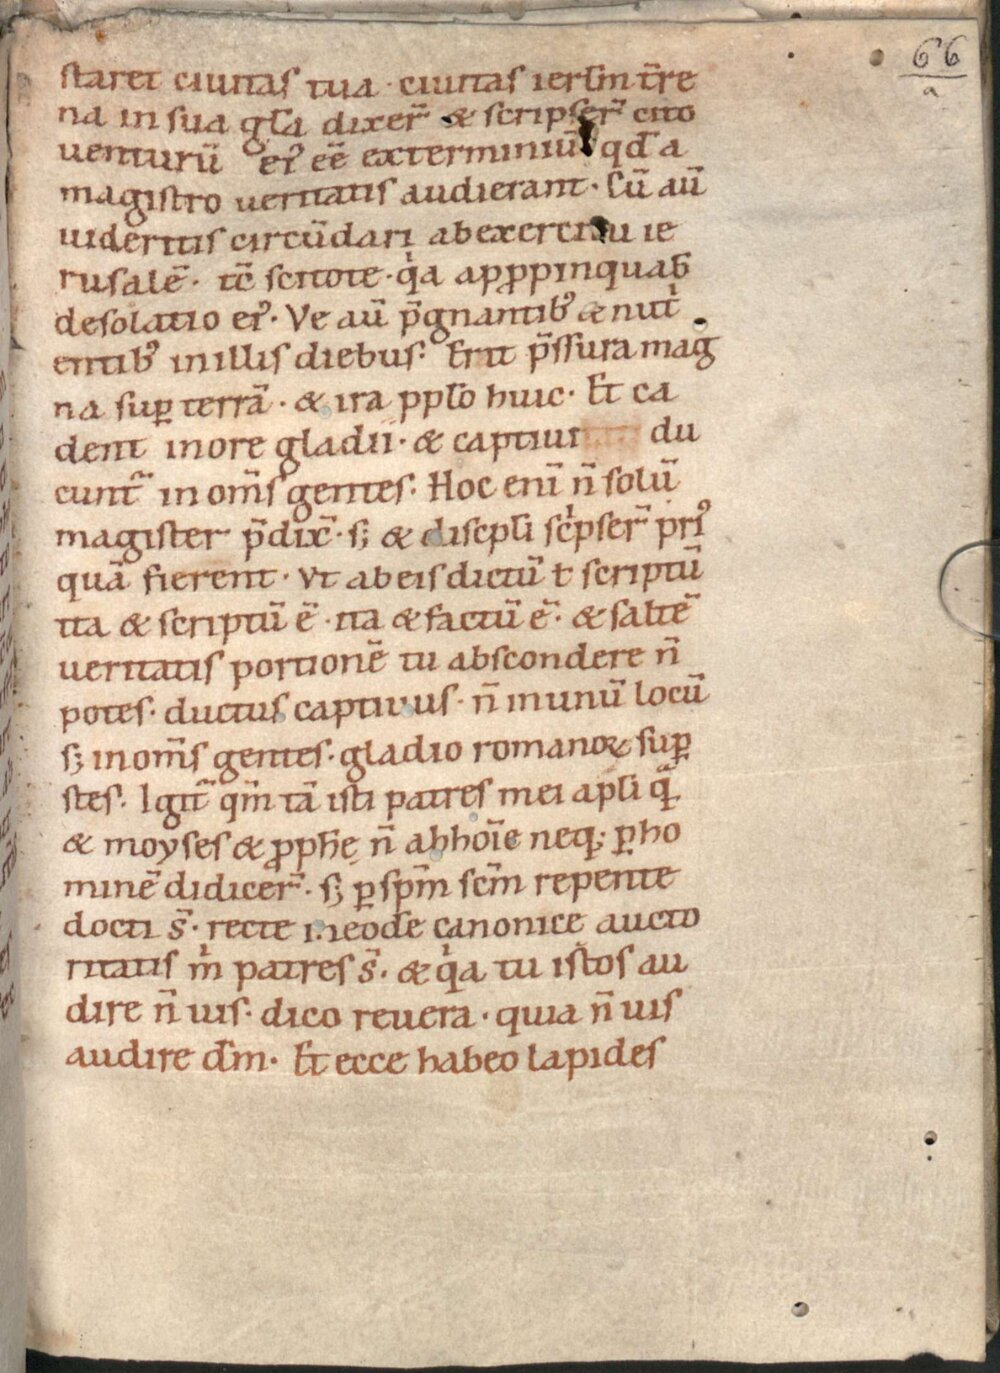 66
a
staret ciuitas tua · ciuitas ierłm t̄re
na in sua gła dixer̄ & scripser̄ cito
uenturū ei᾽ eē exterminiū qd̄ a
magistro ueritatis audierant · Cū aū
uideritis circūdari ab exercitu ie
rusalē · tc̄ scitote · qͥa apꝓpinquab̄
desolatio ei᾽ · Ve aū p̄gnantib᾽ & nutͥ
entib᾽ in illis diebus · Erit p̄ssura mag
na suꝑ terrā · & ira ppło huic · Et ca
dent in ore gladii · & captiui du
cunt᷑ in om̄s gentes · Hoc eni̅ n̄ solū
magister p̄dix̄ · s; & discpłi scͥpser̄ pri᾽
quā fierent · Vt ab eis dictū ł scriptū
ita & scriptū ē · ita & factū ē · & saltē
ueritatis portionē tu abscondere n̄
potes · ductus captiuus · n̄ in unū locū
s; in om̄s gentes · gladio romanoꝝ suꝑ
stes · Igit᷑ qm̄ tā isti patres mei apłi qͣ̄
& moyses & ꝓphę n̄ ab hoīe neq; ꝑ ho
minē didicer̄ · s; ꝑ sp̄m scm̄ repente
docti s̄ · recte in eodē canonice aucto
ritatis mͥ patres s̄ · & qͥa tu istos au
dire n̄ uis · dico reuera · quia n̄ uis
audire dm̄ · Et ecce habeo lapides